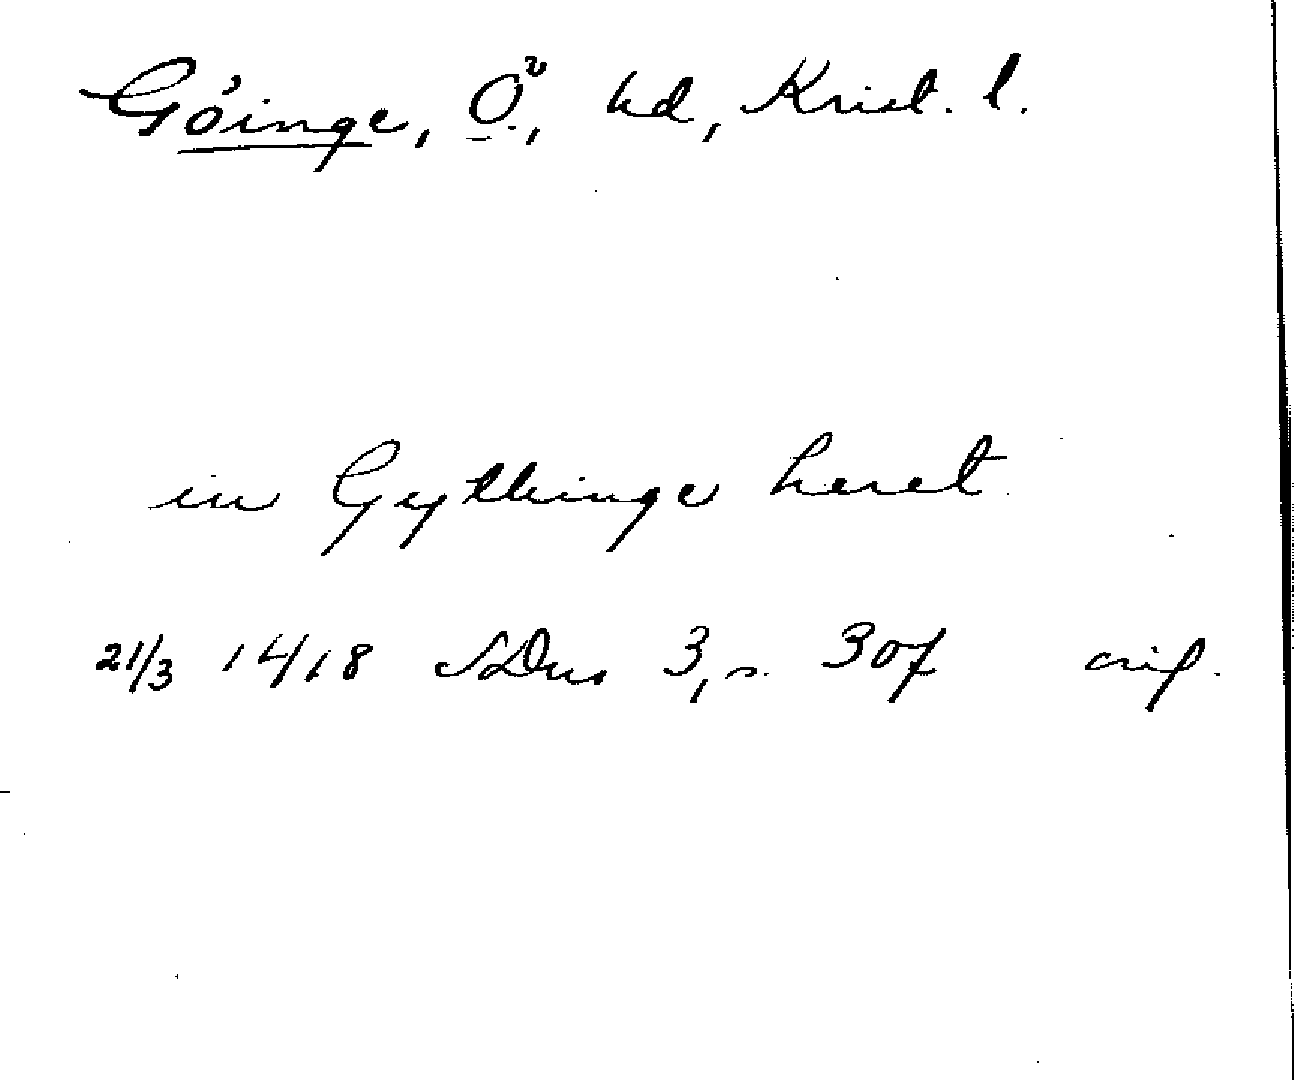 Göinge, Ö, hd, Krist. l.
in Gythinge heret
21/3 1418 SDns 3, s. 307 orig.